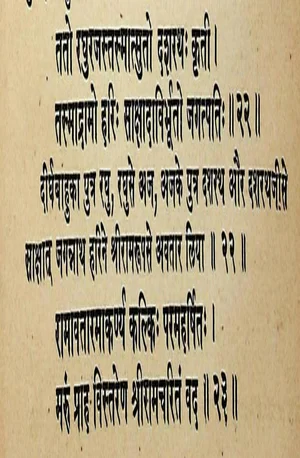 ततो रघुरजस्तस्मात्सुतो दशरथः कृती।
तस्माद्रामो हरिः साक्षादाविर्भूतो जगत्पतिः॥२२॥
दीर्घबाहुका पुत्र रघु, रघुसे अज, अजके पुत्र दशरथ और दशरथजीसे
साक्षात् जगन्नाथ हरिने श्रीरामरूपसे अवतार लिया॥२२॥
रामावतारमाकर्ण्य कल्किः परमहर्षितः।
मरुं प्राह विस्तरेण श्रीरामचरितं वद॥२३॥